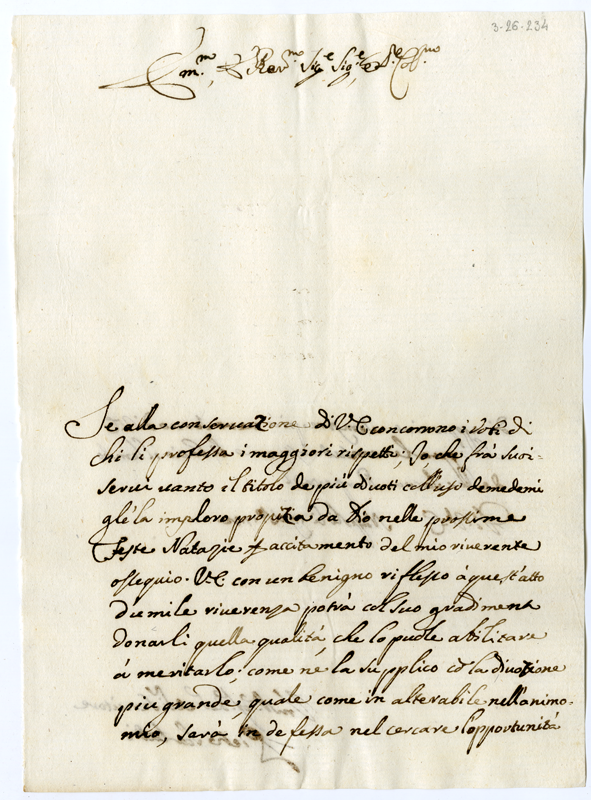 3-26-234
Em.mo, e Rev.mo Sig.e Sig.e, e P.e Col.mo
Se alla conseruatione di V.E. concorrono i voti di
chi li professa i maggiori rispetti; Io, che frà suoi
serui uanto il titolo de più diuoti coll'uso demedemi
glè la imploro propitia da Dio nelle prossime
Feste Natazie p accitamento del mio riuerente
ossequio. V.E. con un benigno riflesso à quest'atto
d'umile riuerenza potrà col suo gradiment
donarli quella qualità, che lo puole abilitare
à meritarlo; come nè la supplico cō la diuotione
piu grande, quale come in alterabile nell'animo
mio, sarà in defessa nel cercare l'opportunità